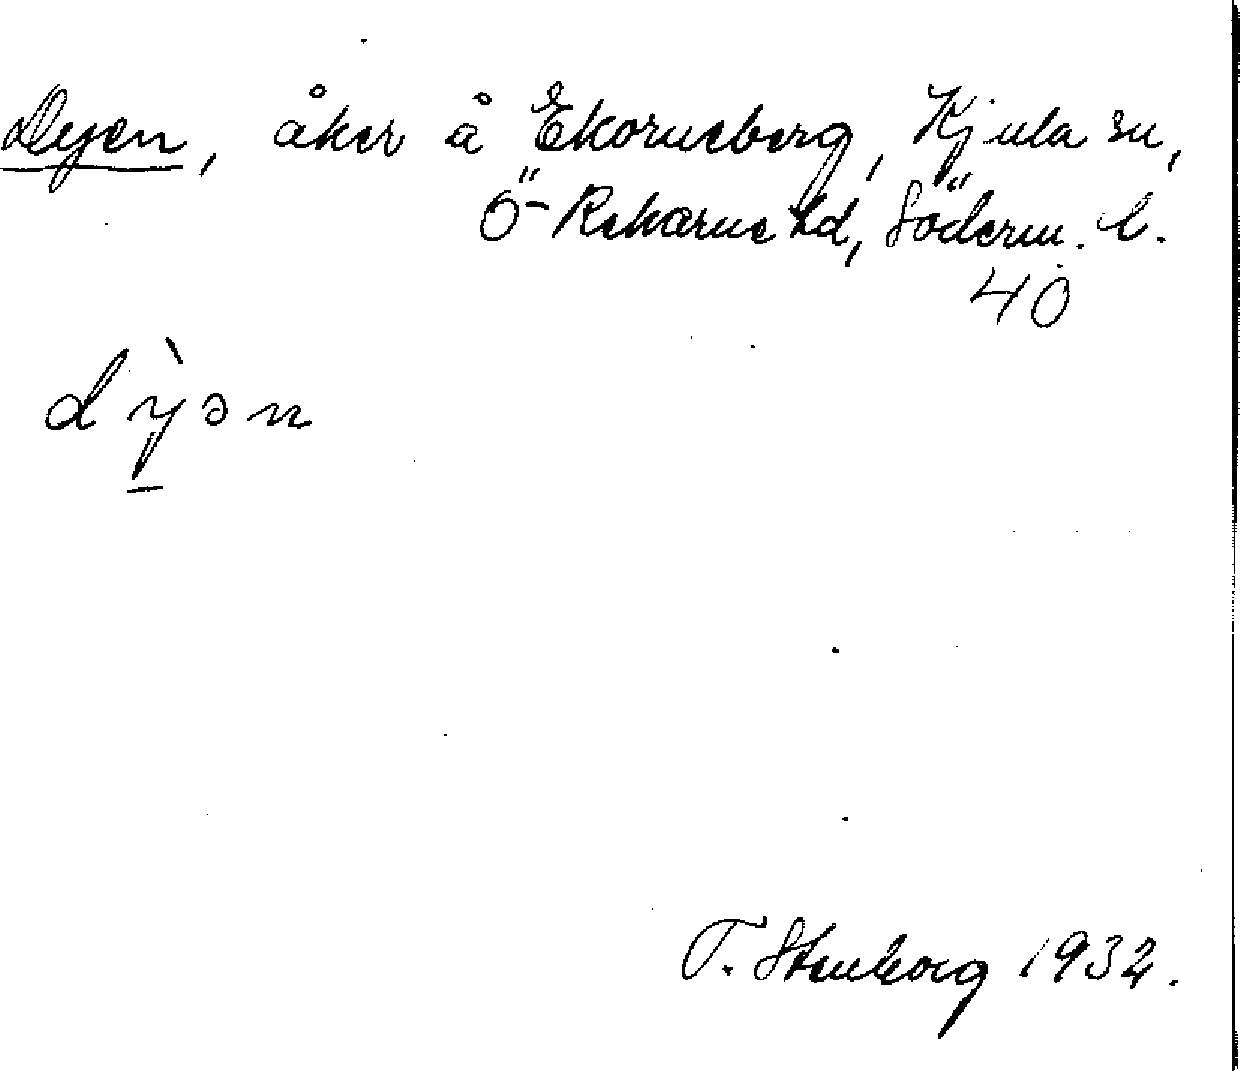 Dyen, åker å Ekorneberg, Kjula sn,
Ö-Rekarne hd, Söderm. l.
40
dỳən
T. Stenborg 1932.